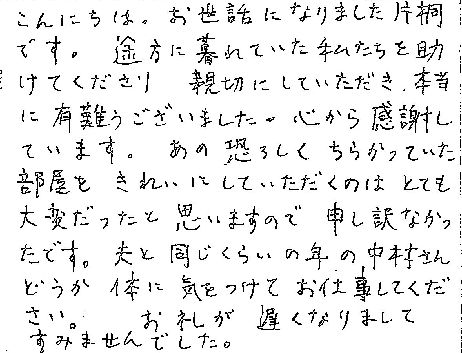 こんにちは。お世話になりました片桐
です。 途方に暮れていた私たちを助
けてくださり 親切にしていただき、本当
に有難うございました。心から感謝し
ています。 あの恐ろしくちらかっていた
部屋を きれいにしていただくのは とても
大変だったと思いますので 申し訳なかっ
たです。夫と同じくらいの年の中村さん
どうか 体に気をつけてお仕事してくだ
さい。 お礼が遅くなりまして
すみませんでした。